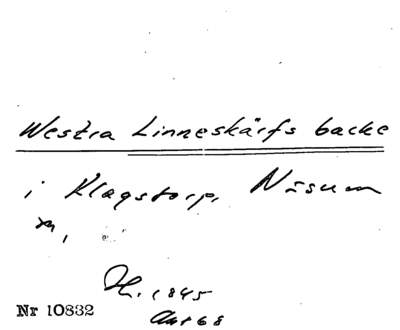 Westra Linneskärfs backe
i Klagstorp, Näsum
H. 1845
Nr 10832 Akt 68